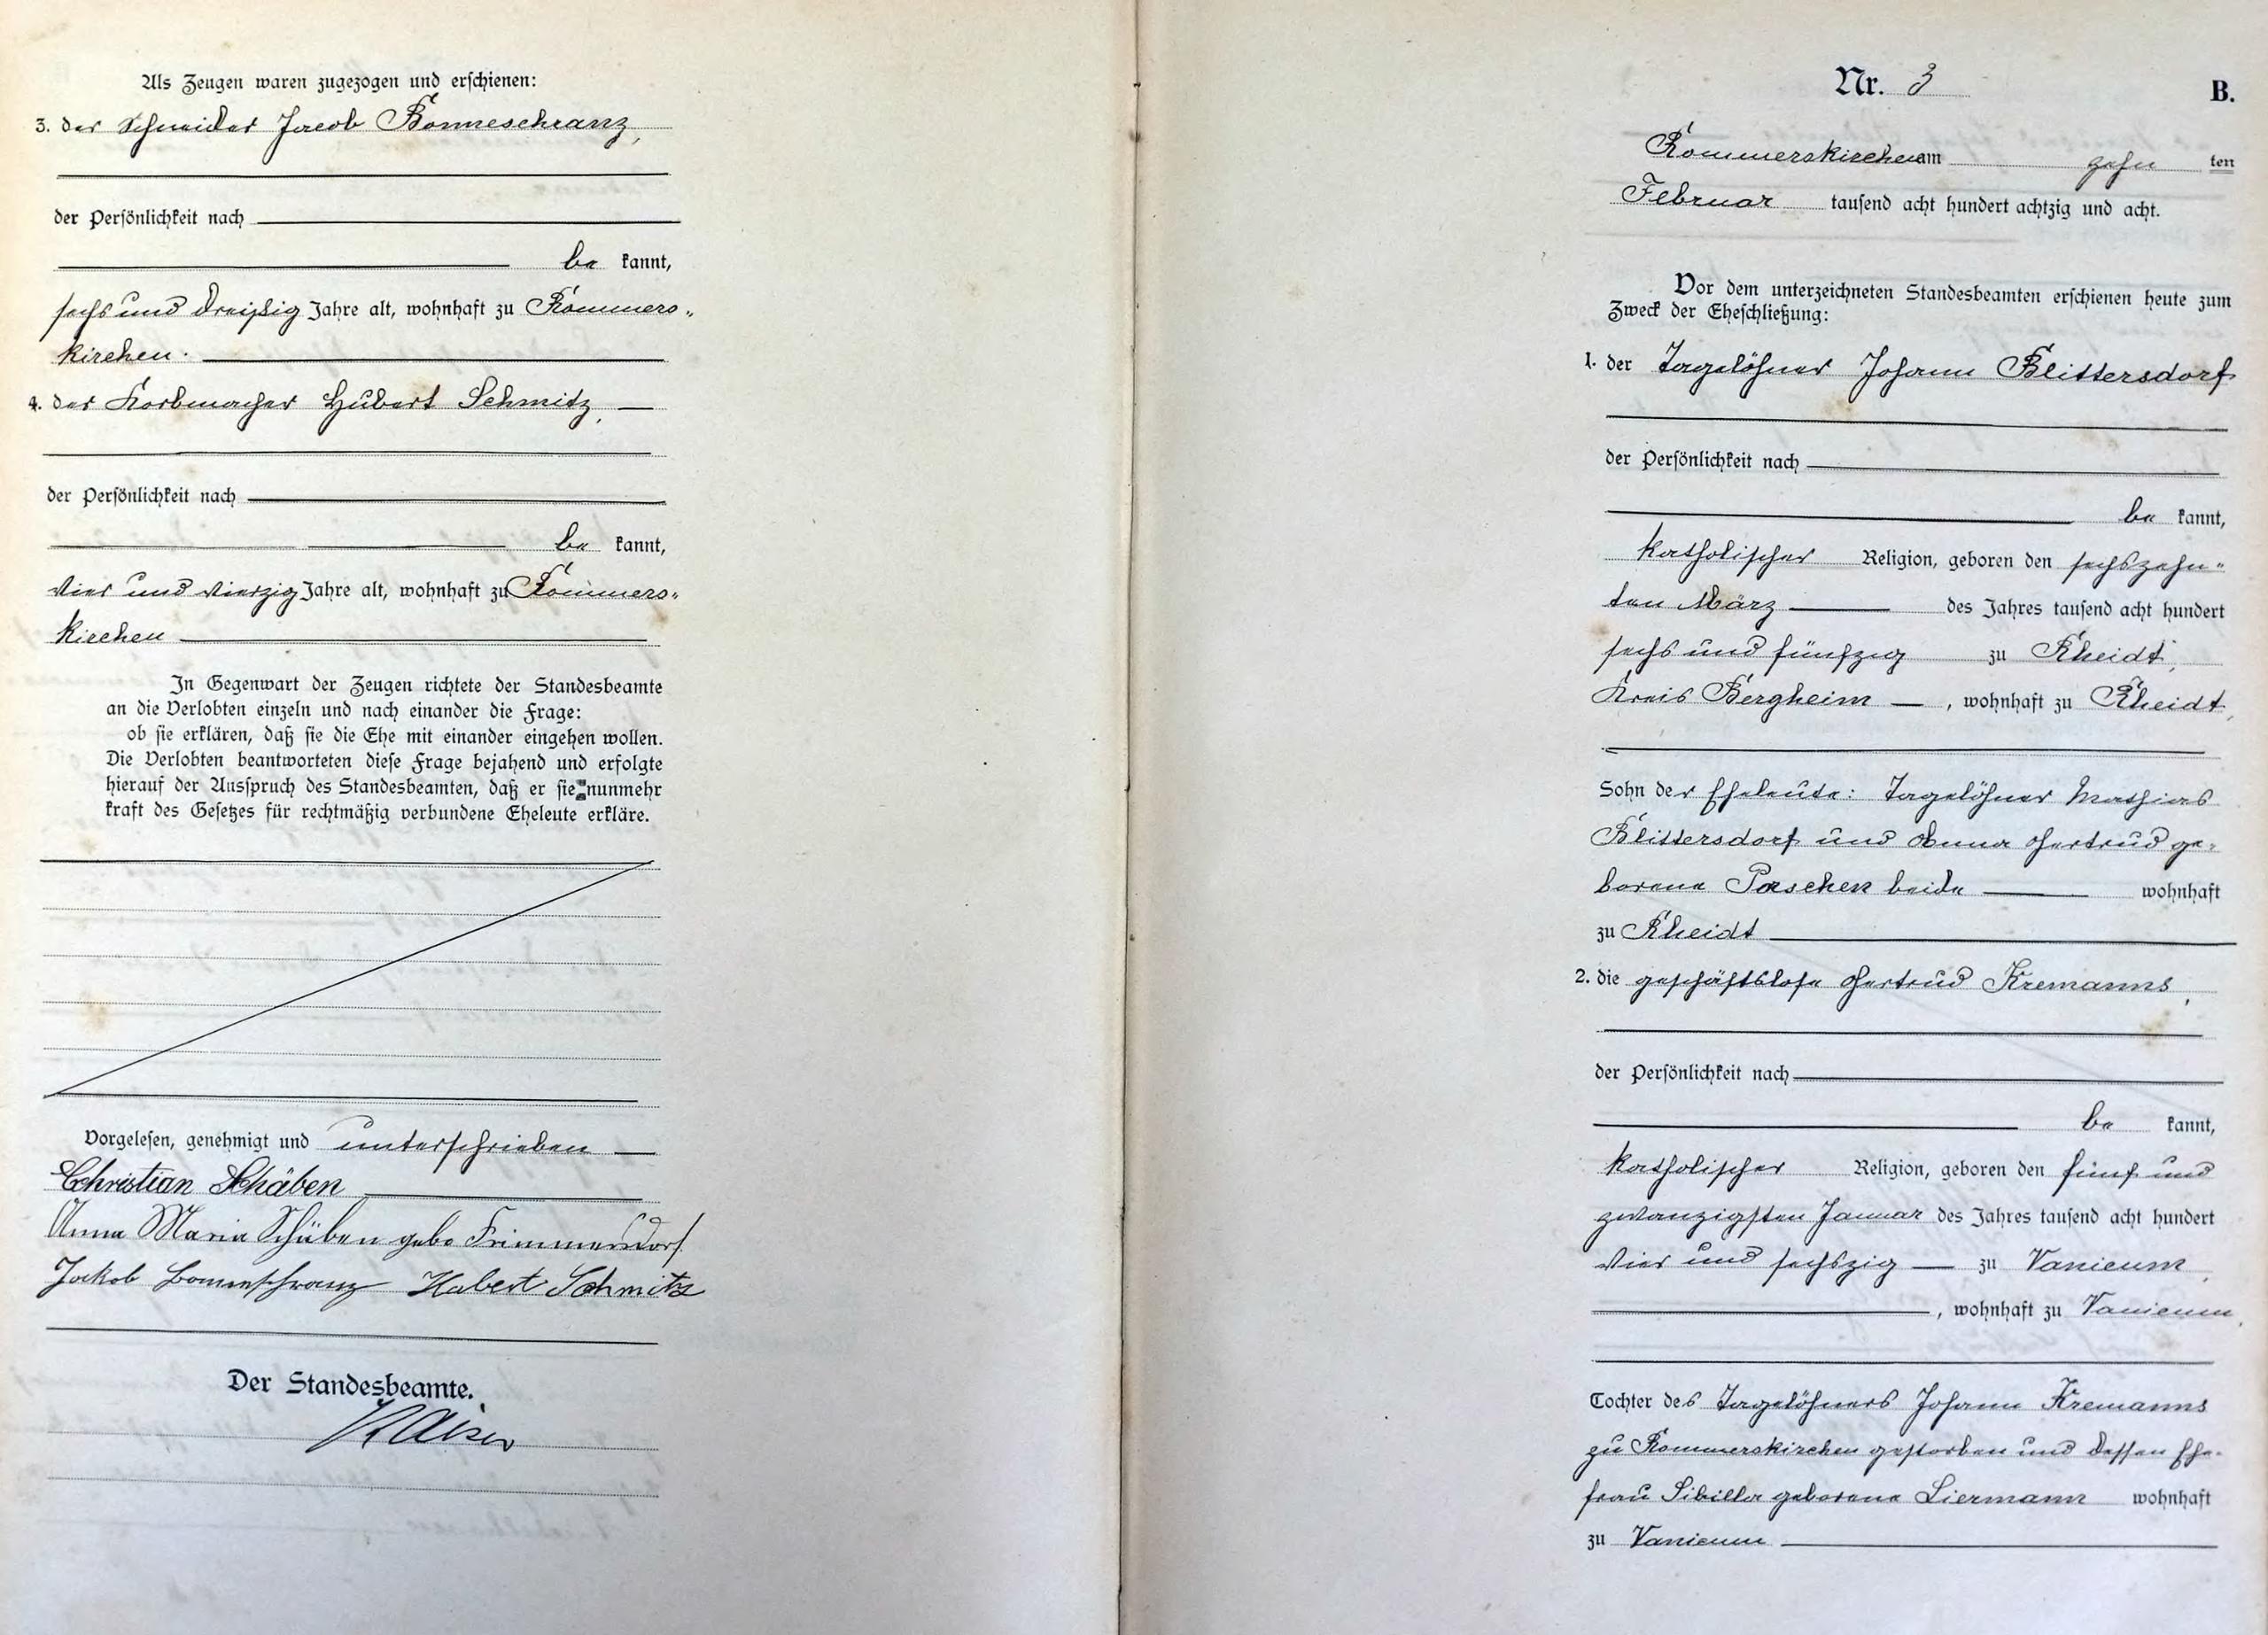 Als Zeugen waren zugezogen und erschienen:
3. der Schneider Jacob Bonneschranz,
der Persönlichkeit nach
be kannt,
sechs und dreißig Jahre alt, wohnhaft zu Rommers-
kirchen.
4. der Korbmacher Hubert Schmitz,
der Persönlichkeit nach
be kannt,
vier und vierzig Jahre alt, wohnhaft zu Rommers-
kirchen
In Gegenwart der Zeugen richtete der Standesbeamte
an die Verlobten einzeln und nach einander die Frage:
ob sie erklären, daß sie die Ehe mit einander eingehen wollen.
Die Verlobten beantworteten diese Frage bejahend und erfolgte
hierauf der Ausspruch des Standesbeamten, daß er sie nunmehr
kraft des Gesetzes für rechtmäßig verbundene Eheleute erkläre.
Vorgelesen, genehmigt und unterschrieben
Christian Schäben
Anna Maria Schäben gebo Frimmersdorf
Jakob Bonneschranz Hubert Schmitz
Der Standesbeamte.
Nr. 3
B.
Rommerskirchen am zehn ten
Februar tausend acht hundert achtzig und acht.
Vor dem unterzeichneten Standesbeamten erschienen heute zum
Zweck der Eheschließung:
1. der Tagelöhner Johann Blittersdorf
der Persönlichkeit nach
be kannt,
katholischer Religion, geboren den sechszehn-
ten März des Jahres tausend acht hundert
sechs und fünfzig zu Rheidt,
Kreis Bergheim, wohnhaft zu Rheidt,
Sohn der Eheleute: Tagelöhner Mathias
Blittersdorf und Anna Gertrud ge-
borene Paschen beide wohnhaft
zu Rheidt
2. die geschäftslose Gertrud Kremanns,
der Persönlichkeit nach
be kannt,
katholischer Religion, geboren den fünf und
zwanzigsten Januar des Jahres tausend acht hundert
vier und sechszig zu Vanicum,
, wohnhaft zu Vanicum,
Tochter des Tagelöhners Johann Kremanns
zu Rommerskirchen gestorben und dessen Ehe-
frau Sibilla geborene Liermann wohnhaft
zu Vanicum